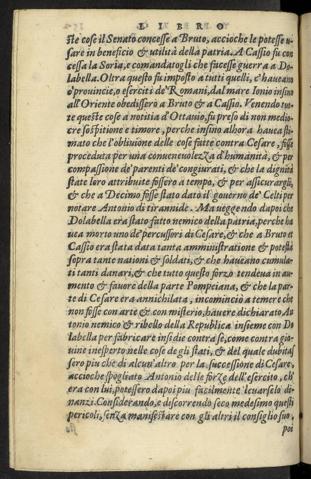 LIBRO
ste cose il Senato concesse a Bruto, accioche le potesse u-
sare in beneficio & utilità della patria. A Cassio fu con
cessa la Soria, e comandatogli che facesse guerra a Do-
labella. Oltra questo fu imposto a tutti quelli, c'haueano
o prouincie, o eserciti de' Romani, dal mare Ionio insino
all'Oriente obedisserò a Bruto & a Cassio. Venendo tut-
te queste cose a notitia d'Ottauio, fu preso di non medio-
cre sospitione e timore, perche insino alhora haueа sti-
mato che l'obliuione delle cose fatte contra Cesare, fosse
proceduta per una conueneuolezza d'humanità, & per
compassione de' parenti de' congiurati, & che la dignità
state loro attribuite fossero a tempo, & per assicurargli,
& che a Decimo fosse stato dato il gouerno de' Celti per
notare Antonio di tirannide. Ma ueggendo dapoi che
Dolabella era stato fatto nemico della patria, perche ha
uea morto uno de' percussori di Cesare, & che a Bruto et
Cassio era stata data tanta amministratione & potestà
sopra tante nationi & soldati, & che haueano cumula-
ti tanti danari, & che tutto questo forzo tendeua in au-
mento & fauore della parte Pompeiana, & che la par-
te di Cesare era annichilata, incominciò a temere che
non fosse con arte & con misterio, hauere dichiarato An
tonio nemico & ribello della Republica insieme con Do
labella per fabricare insidie contra se, come contra gio-
uine inesperto nelle cose degli stati, & del quale dubitas
sero piu che di alcun'altro per la successione di Cesare,
accioche spogliato Antonio delle forze dell'esercito, ch'
era con lui, potessero dapoi piu facilmente leuarselo di-
nanzi. Considerando, e discorrendo seco medesimo questi
pericoli, senza manifestare con gli altri il consiglio suo,
poi